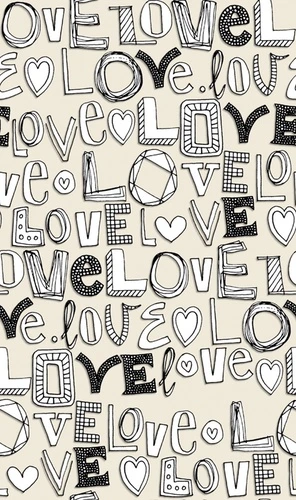 OVE LOVeL
ε♡LOVe.lOVε
eLOVe♡LOVE
ve•LOVELO
LOVEl♡VE♡
OVeLOVEL
Ve.lOVε♡LO
LOVElove♡
OVELOVe•L
♡VE♡LOVEl